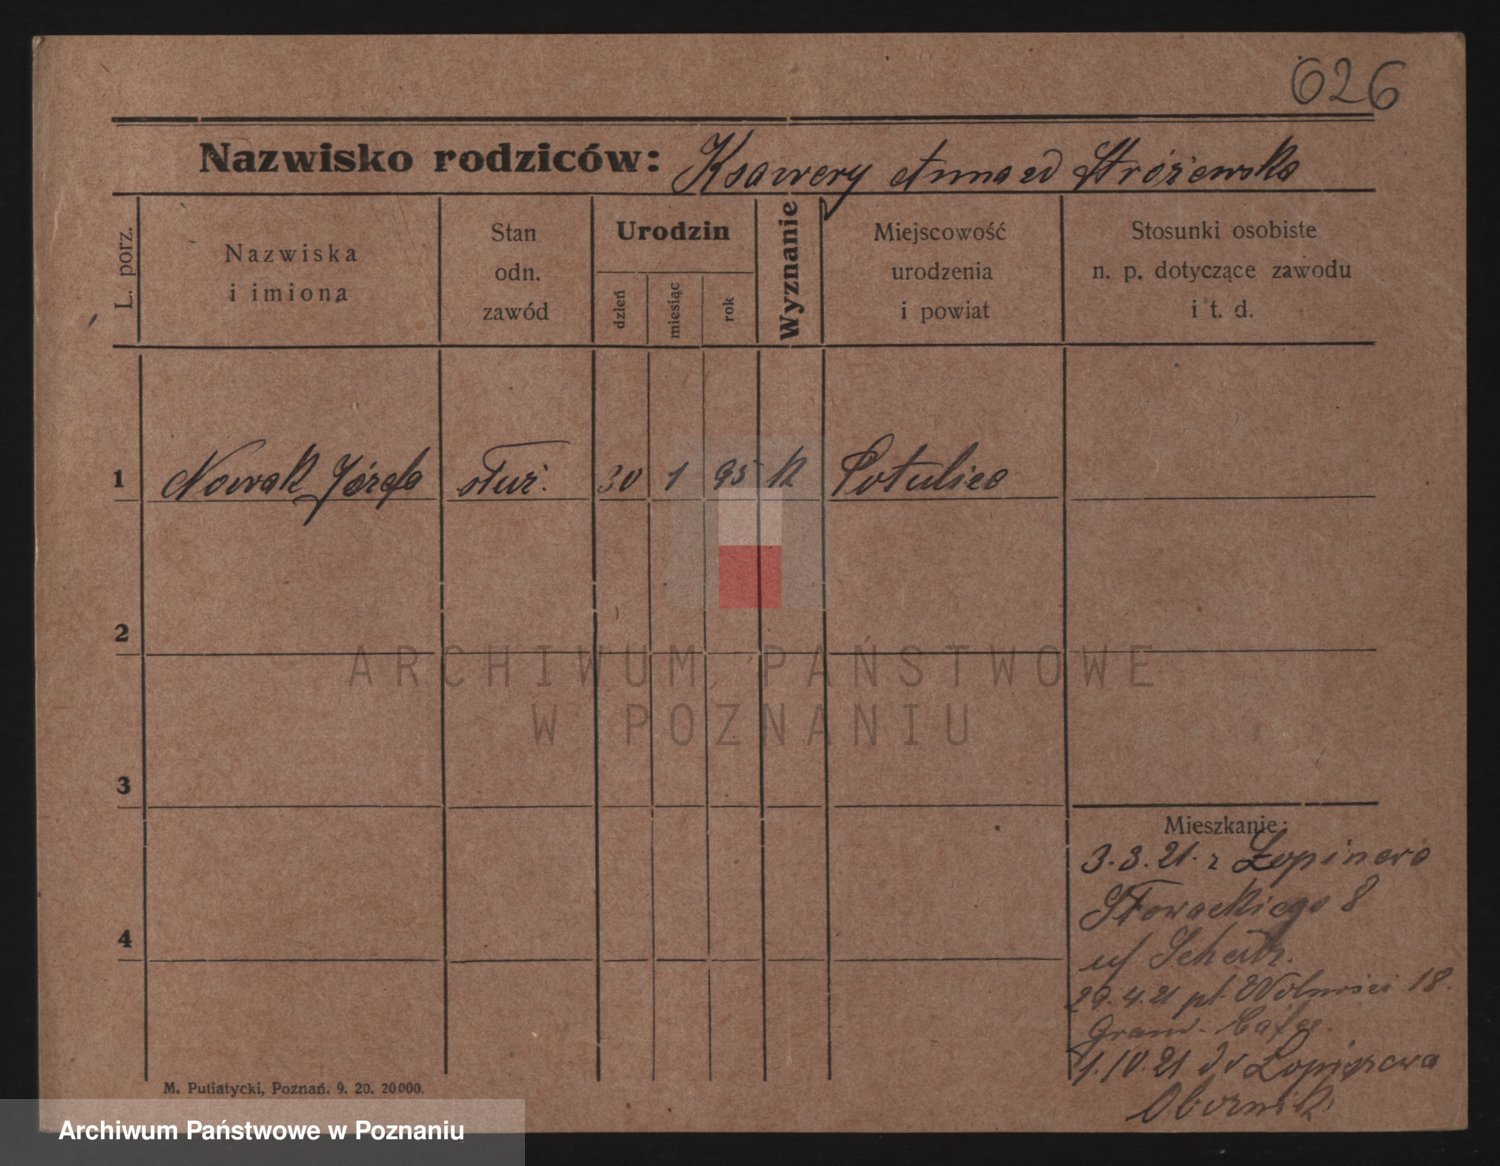 626
Nazwisko rodziców: Ksawery Anna zd Stróżewska
L. porz.
Nazwiska
i imiona
Stan
odn.
zawód
Urodzin
dzień
miesiąc
rok
Wyznanie
Miejscowość
urodzenia
i powiat
Stosunki osobiste
n. p. dotyczące zawodu
i t. d.
1 Nowak Józefa służ. 30 1 95 k Potulice
ARCHIWUM PAŃSTWOWE
W POZNANIU
2
3
4
Mieszkanie:
3.3.21. z
Słowackiego 8
u/
29.4.21 pl. Wolności 18.
Grand-Café.
1.10.21 do
Oborniki
M. Putiatycki, Poznań. 9. 20. 20 000.
Archiwum Państwowe w Poznaniu